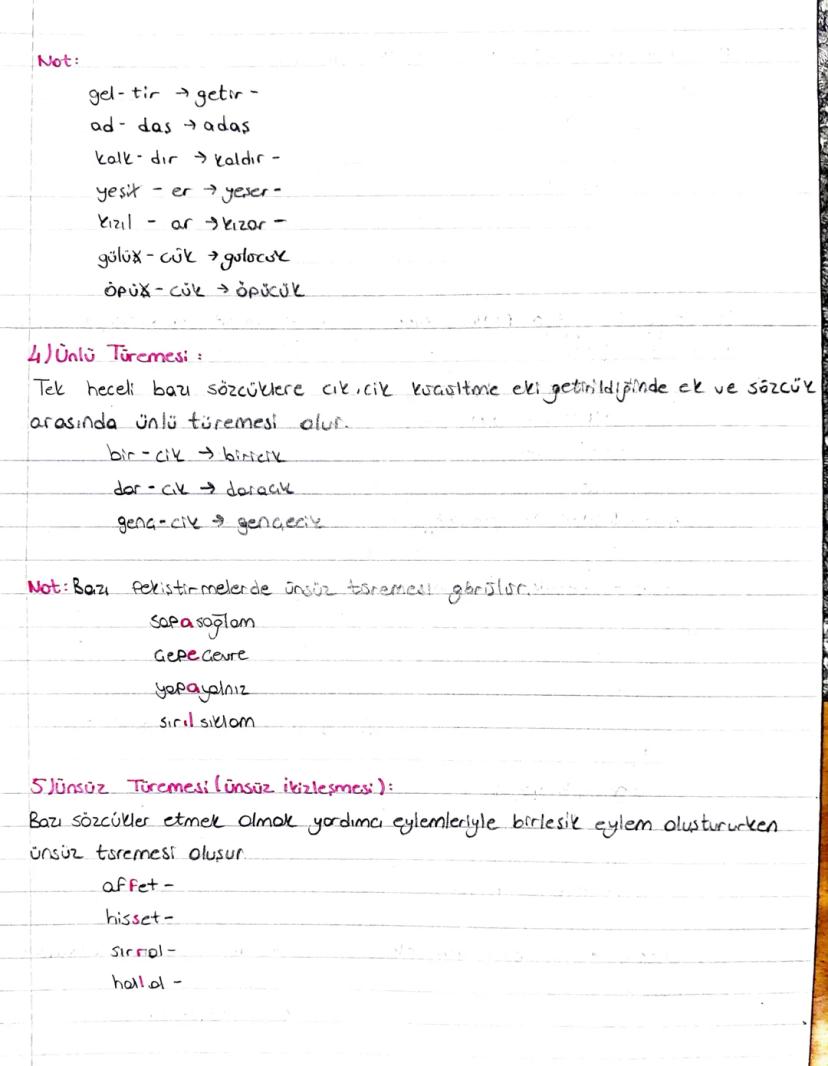 Not:
gel- tir → getir -
ad - daş → adaş
kalk - dır → kaldır -
yeşil - er → yeşer -
kızıl - ar → kızar -
gülüx - cük → gulocuk
öpüx - cük → öpücük
4) Ünlü Türemesi :
Tek heceli bazı sözcüklere cık, cik küçültme eki getirildiğinde ek ve sözcük
arasında ünlü türemesi olur.
bir - cik → biricik
dar - cık → daracık
genç - cik → gençecik
Not: Bazı pekiştirmelerde ünsüz türemesi görülür.
sapasağlam
çepeçevre
yapayalnız
sırılsıklam
5) Ünsüz Türemesi (ünsüz ikizleşmesi):
Bazı sözcükler etmek olmak yardımcı eylemleriyle birleşik eylem oluştururken
ünsüz türemesi oluşur
affet -
hisset -
sırrol -
hallol -